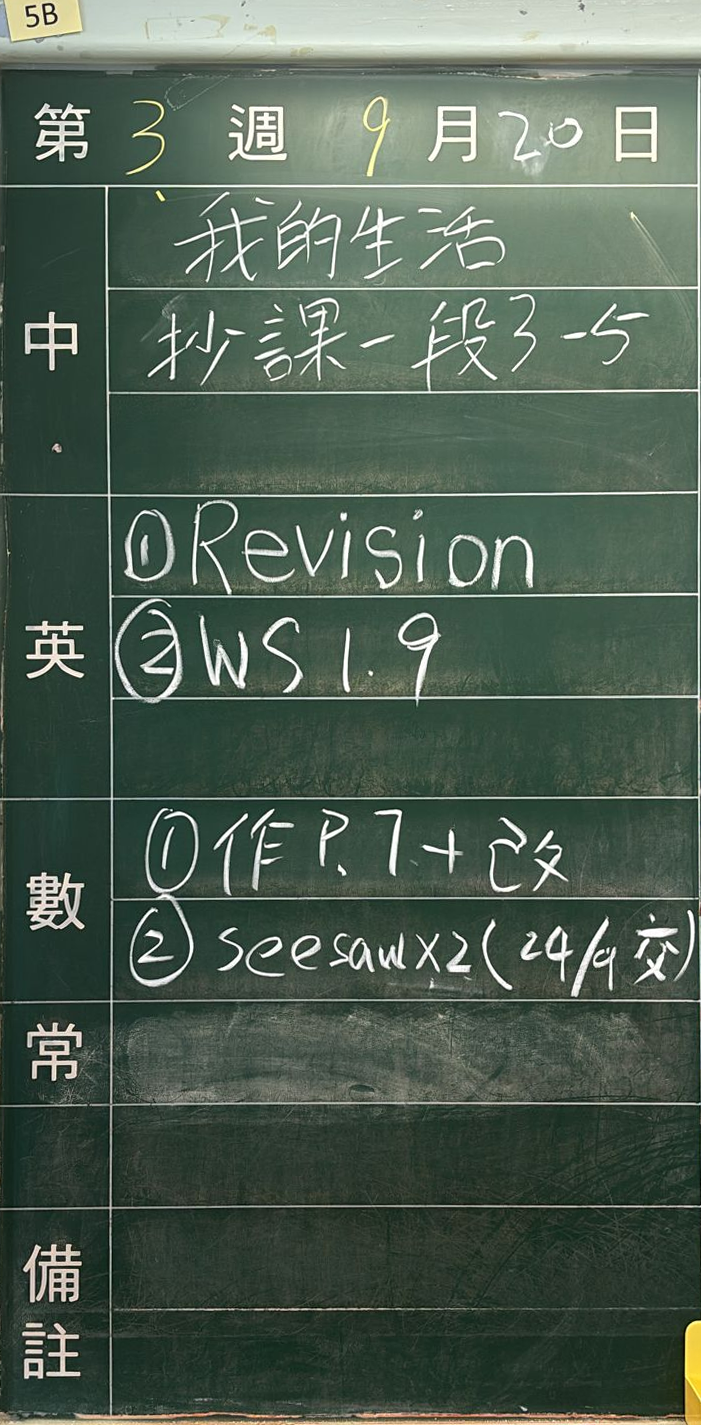 5B
第 3 週 9 月 20 日
中
我的生活
抄課一段3-5
英
① Revision
② WS 1.9
數
① 作 P.7 + 改
② seesaw x2 (24/9 交)
常
備註